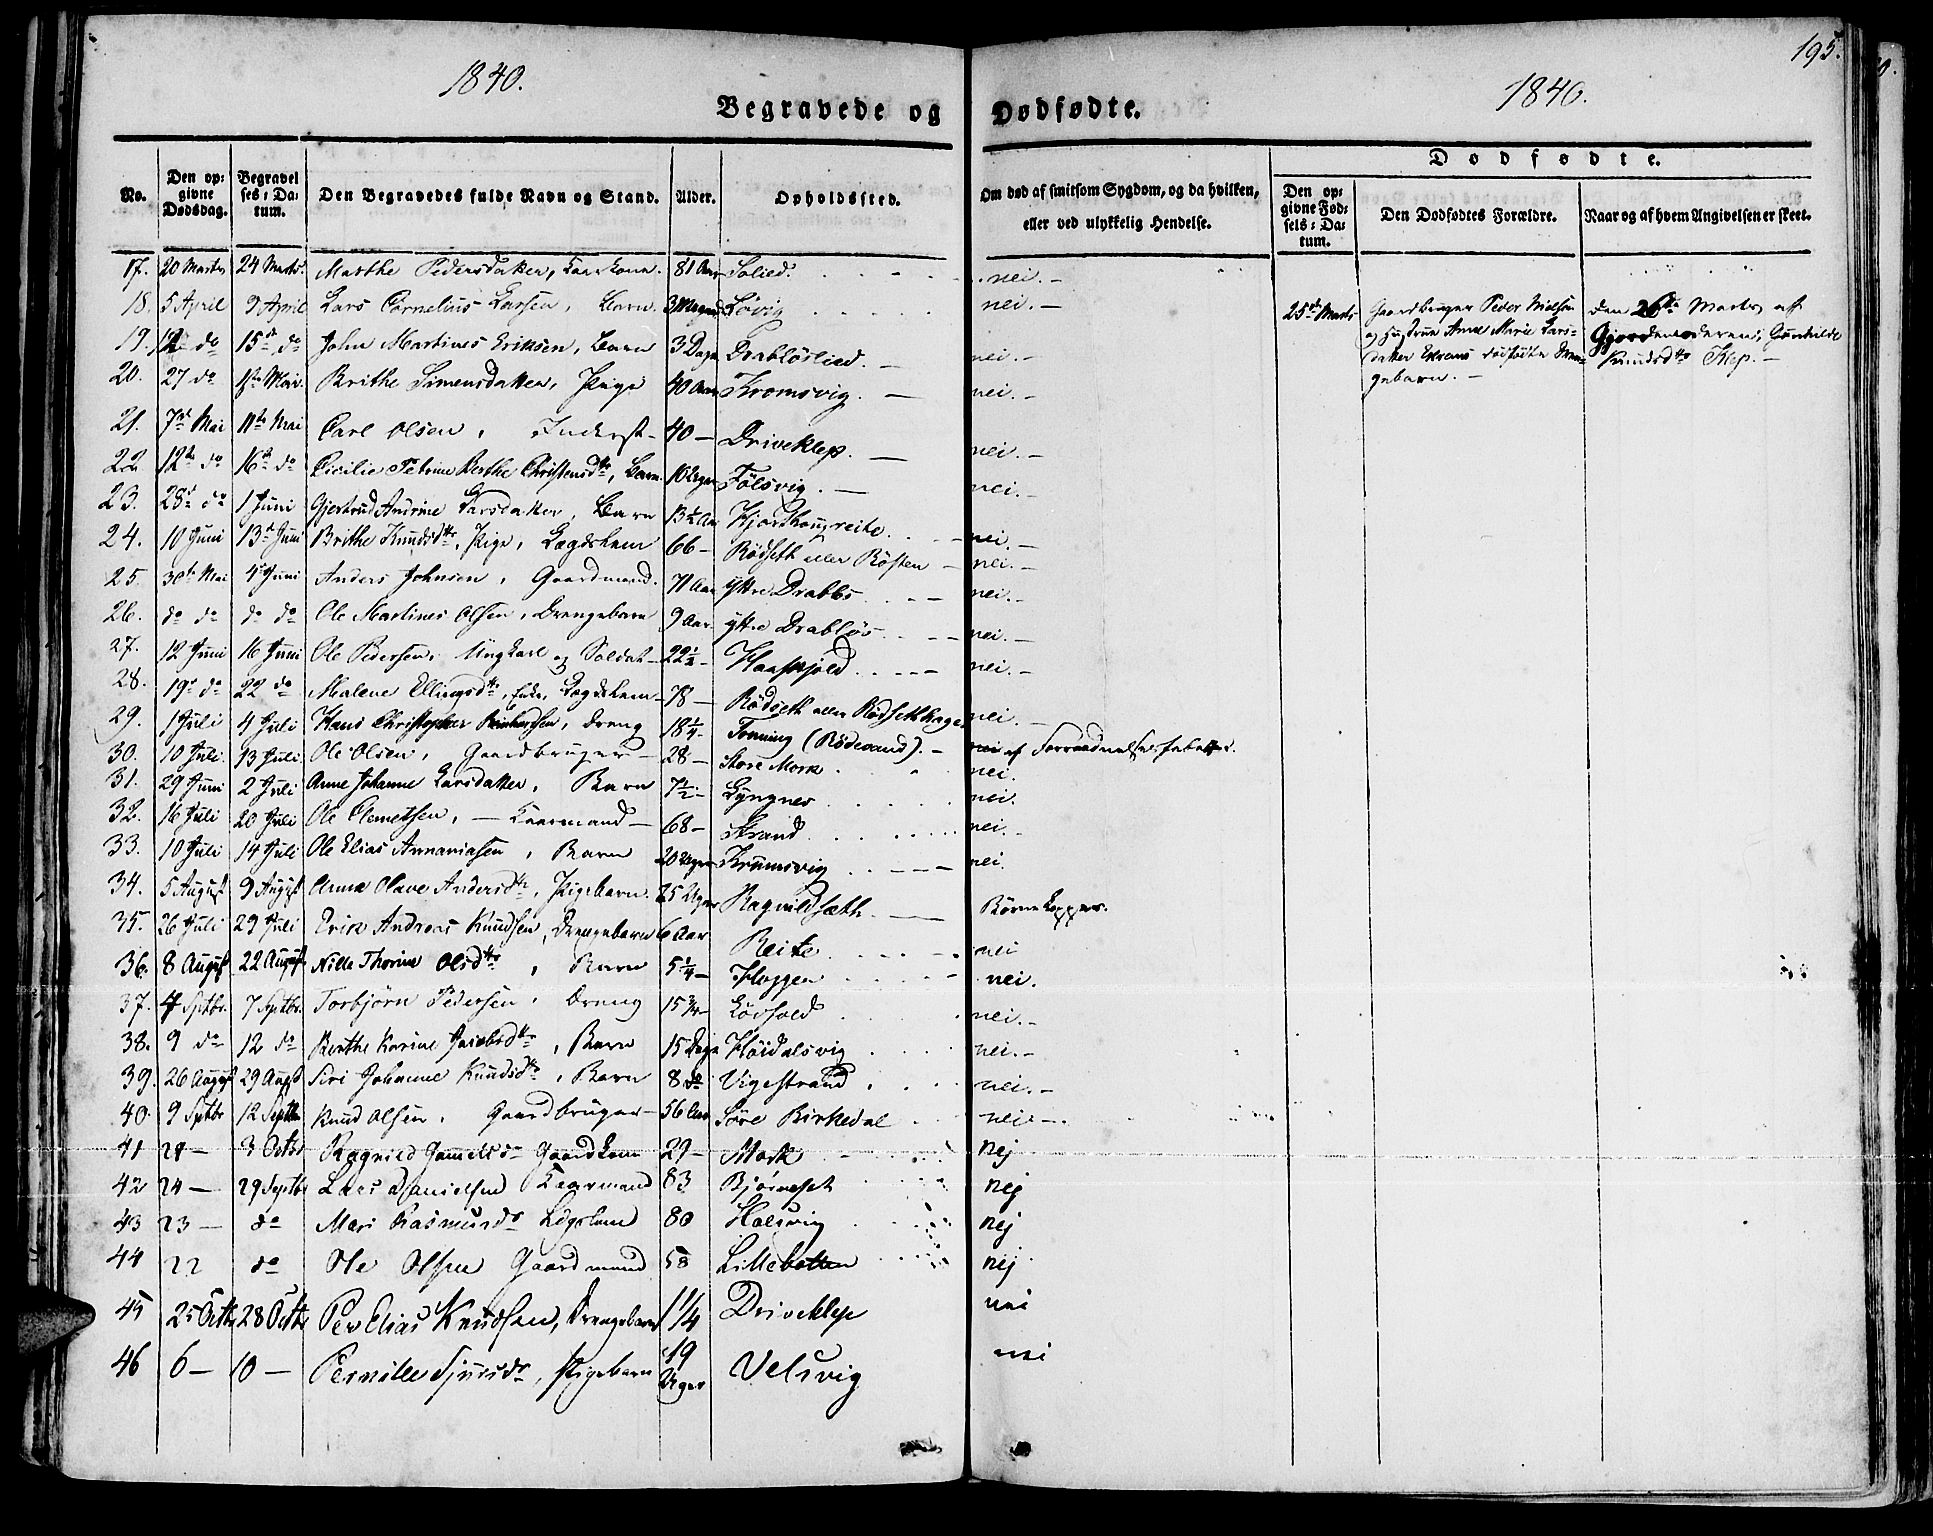 1840.
Begravede og
No.
Den op-
givne
Dødsdag.
Begravel
ses-Da-
tum.
Den Begravedes fulde Navn og Stand.
Alder.
Opholdssted.
17. 20 Marts 24 Marts. Marthe Pedersdatter, Kaarkone. 81 Aar Solied. nei.-
18. 5 April 9 April Lars Cornelius Larsen, Barn 3 Løvig nei.-
19. 12 do 15de do John Martinus Eriksen, Barn 3 Dage Drabløslied. nei.-
20. 27 do 1ste Mai. Brithe Simensdatter, Pige 40 Aar Kromsvig. nei.-
21. 7de Mai 11te Mai Carl Olsen, Inderst- 40 - Driveklep. nei.-
22. 12te do 16de do Cicilie Petrine Berthe Christensdtr, Barn 10 Uger Følsvig. nei.-
23. 28de do 1 Juni Gjertrud Andrine Larsdatter, Barn 13½ Aar Hjorthougreite nei.-
24. 10 Juni 13de Juni Brithe Knudsdtr, Pige, Lægdslem 66 - Rødseth eller Røften - nei.-
25. 30te Mai 4de Juni Anders Johnsen, Gaardmand. 71 Aar Yttre Drabløs nei.-
26. do do do do Ole Martinus Olsen, Drengebarn 9 Aar. yttre Drabløs nei.-
27. 12 Juni 16 Juni Ole Pedersen, Ungkarl og Soldat - 22½ - Haaskjold nei.-
28. 19de do 22 do Malene Ellingsdtr, Enke, Lægdslem - 78 - Rødseth eller Rødsethhage nei.-
29. 1 Juli 4 Juli Hans Christopher Reinhardsen, Dreng 18¼ - Fonning (Rødevand). - nei af Forraadnelsesfeber.
30. 10 Juli. 13 Juli Ole Olsen, Gaardbruger 28 - Store Mork. nei.
31. 29 Juni 2 Juli Anne Johanne Larsdatter, Barn 7½ - Lyngnes nei.
32. 16 Juli 20 Juli Ole Clemetsen, - Kaarmand - 68 - Strand nei.-
33. 10 Juli 14 Juli Ole Elias Ananiasen, Barn 20 Uger Krumsvig nei.
34. 5 August 9 August Anne Olave Andersdtr, Pigebarn 25 Uger Ragnildsæth. Børnekopper.
35. 26 Juli 29 Juli Erik Andreas Knudsen, Drengebarn 6 Aar Reite nei
36. 8 August 22 August Nille Thorine Olsdtr, Barn 5¼ - Haggen nei.
37. 4 Septbr. 7 Septbr. Torbjørn Pedersen, Dreng 15¾ - Løvfold nei.-
38. 9 do 12 do Berthe Karine Jacobsdtr, Barn 15 Dage Høidalsvig nei.-
39. 26 August 29 Augst Siri Johanne Knudsdtr, Barn 8 do Vigestrand. nei.-
40. 9 Septbr 12 Septbr Knud Olsen, Gaardbruger - 56 Aar Søre Birkedal nei-.
41 28 - 3 Octbr Ragnild Gammelsdr Gaardkone 29 - Mork nej
42 24 - 29 Septbr Lars Danielsen Kaarmand 83 Bjørneset nej
43 23 - do Mari Rasmusdr Lægslem 80 Holsvig nej
44 22 do Ole Olsen Gaardmand 58 Lillebotten nej
45 25 Octbr 28 Octbr Per Elias Knudsen, Drengebarn 1 1/4 Driveklep nei
46 6 - 10 - Pernille Sjursdr, Pigebarn 19 Uger Velsvig nei
195.
1840.
Dødfødte.
Om død af smitsom Sygdom, og da hvilken,
eller ved ulykkelig Hendelse.
Dødfødte.
Den op-
givne Fød-
sels-Da-
tum.
Den Dødfødtes Forældre.
Naar og af hvem Angivelsen er skeet.
25de Marts
Gaardbruger Peder Nielsen
og Hustrue Anne Marie Lars-
datter Ekrems dødfødte Dren-
gebarn. -
den 26de Marts af
Gjordemoderen, Gunhilde
Knudsdtr Klep. -